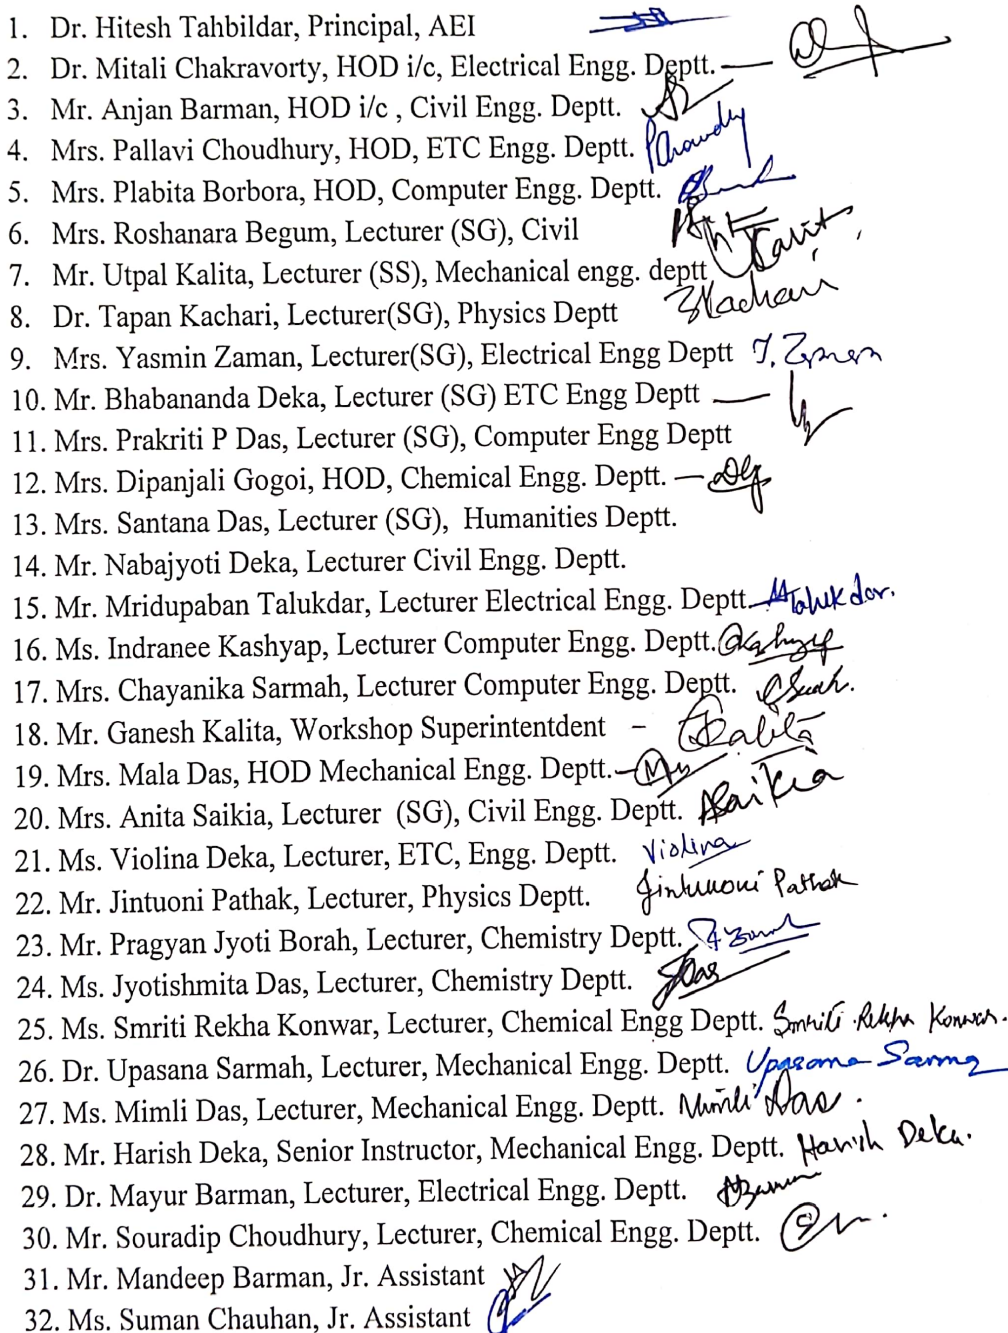 1. Dr. Hitesh Tahbildar, Principal, AEI
2. Dr. Mitali Chakravorty, HOD i/c, Electrical Engg. Deptt.
3. Mr. Anjan Barman, HOD i/c , Civil Engg. Deptt.
4. Mrs. Pallavi Choudhury, HOD, ETC Engg. Deptt.
5. Mrs. Plabita Borbora, HOD, Computer Engg. Deptt.
6. Mrs. Roshanara Begum, Lecturer (SG), Civil
7. Mr. Utpal Kalita, Lecturer (SS), Mechanical engg. deptt
8. Dr. Tapan Kachari, Lecturer(SG), Physics Deptt
9. Mrs. Yasmin Zaman, Lecturer(SG), Electrical Engg Deptt Y. Zaman
10. Mr. Bhabananda Deka, Lecturer (SG) ETC Engg Deptt
11. Mrs. Prakriti P Das, Lecturer (SG), Computer Engg Deptt
12. Mrs. Dipanjali Gogoi, HOD, Chemical Engg. Deptt.
13. Mrs. Santana Das, Lecturer (SG), Humanities Deptt.
14. Mr. Nabajyoti Deka, Lecturer Civil Engg. Deptt.
15. Mr. Mridupaban Talukdar, Lecturer Electrical Engg. Deptt. MTalukdar.
16. Ms. Indranee Kashyap, Lecturer Computer Engg. Deptt.
17. Mrs. Chayanika Sarmah, Lecturer Computer Engg. Deptt.
18. Mr. Ganesh Kalita, Workshop Superintentdent - GKalita
19. Mrs. Mala Das, HOD Mechanical Engg. Deptt.
20. Mrs. Anita Saikia, Lecturer (SG), Civil Engg. Deptt. ASaikia
21. Ms. Violina Deka, Lecturer, ETC, Engg. Deptt. Violina
22. Mr. Jintuoni Pathak, Lecturer, Physics Deptt. Jintumoni Pathak
23. Mr. Pragyan Jyoti Borah, Lecturer, Chemistry Deptt.
24. Ms. Jyotishmita Das, Lecturer, Chemistry Deptt. JDas
25. Ms. Smriti Rekha Konwar, Lecturer, Chemical Engg Deptt. Smriti Rekha Konwar.
26. Dr. Upasana Sarmah, Lecturer, Mechanical Engg. Deptt. Upasana Sarma
27. Ms. Mimli Das, Lecturer, Mechanical Engg. Deptt. Mimli Das.
28. Mr. Harish Deka, Senior Instructor, Mechanical Engg. Deptt. Harish Deka.
29. Dr. Mayur Barman, Lecturer, Electrical Engg. Deptt.
30. Mr. Souradip Choudhury, Lecturer, Chemical Engg. Deptt.
31. Mr. Mandeep Barman, Jr. Assistant
32. Ms. Suman Chauhan, Jr. Assistant